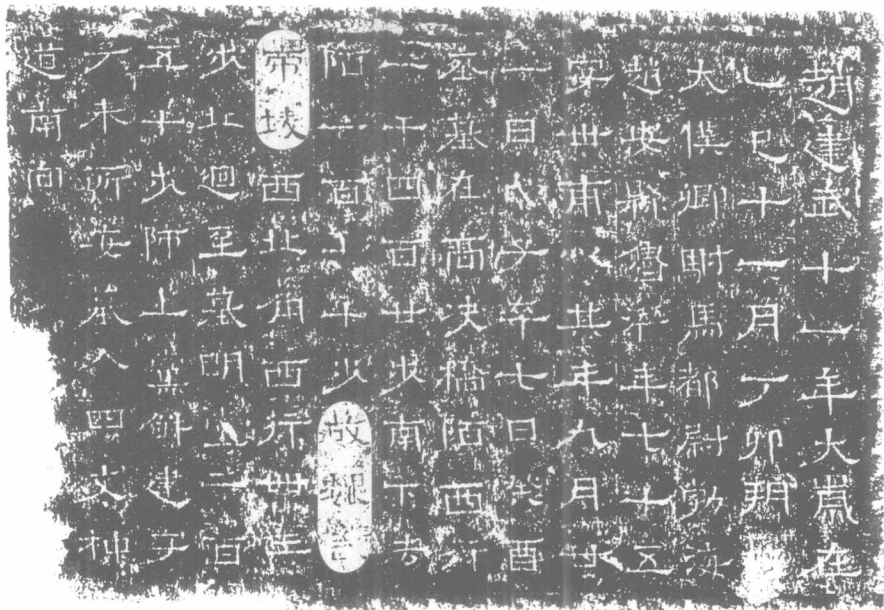 趙建武十一年大歲在
乙巳十一月丁卯朔
大僕卿駙馬都尉勃海
趙安縣魯潛年七十五
字世甫以其年九月廿
一日戊子卒七日癸酉
葬墓在高決橋陌西行
一千四百廿步南下去
陌一百七十步故魏武
帝陵西北角西行卌三
步北迴至墓明堂二百
五十步師上黨解建字
子奉所安墓入四丈神
道南向